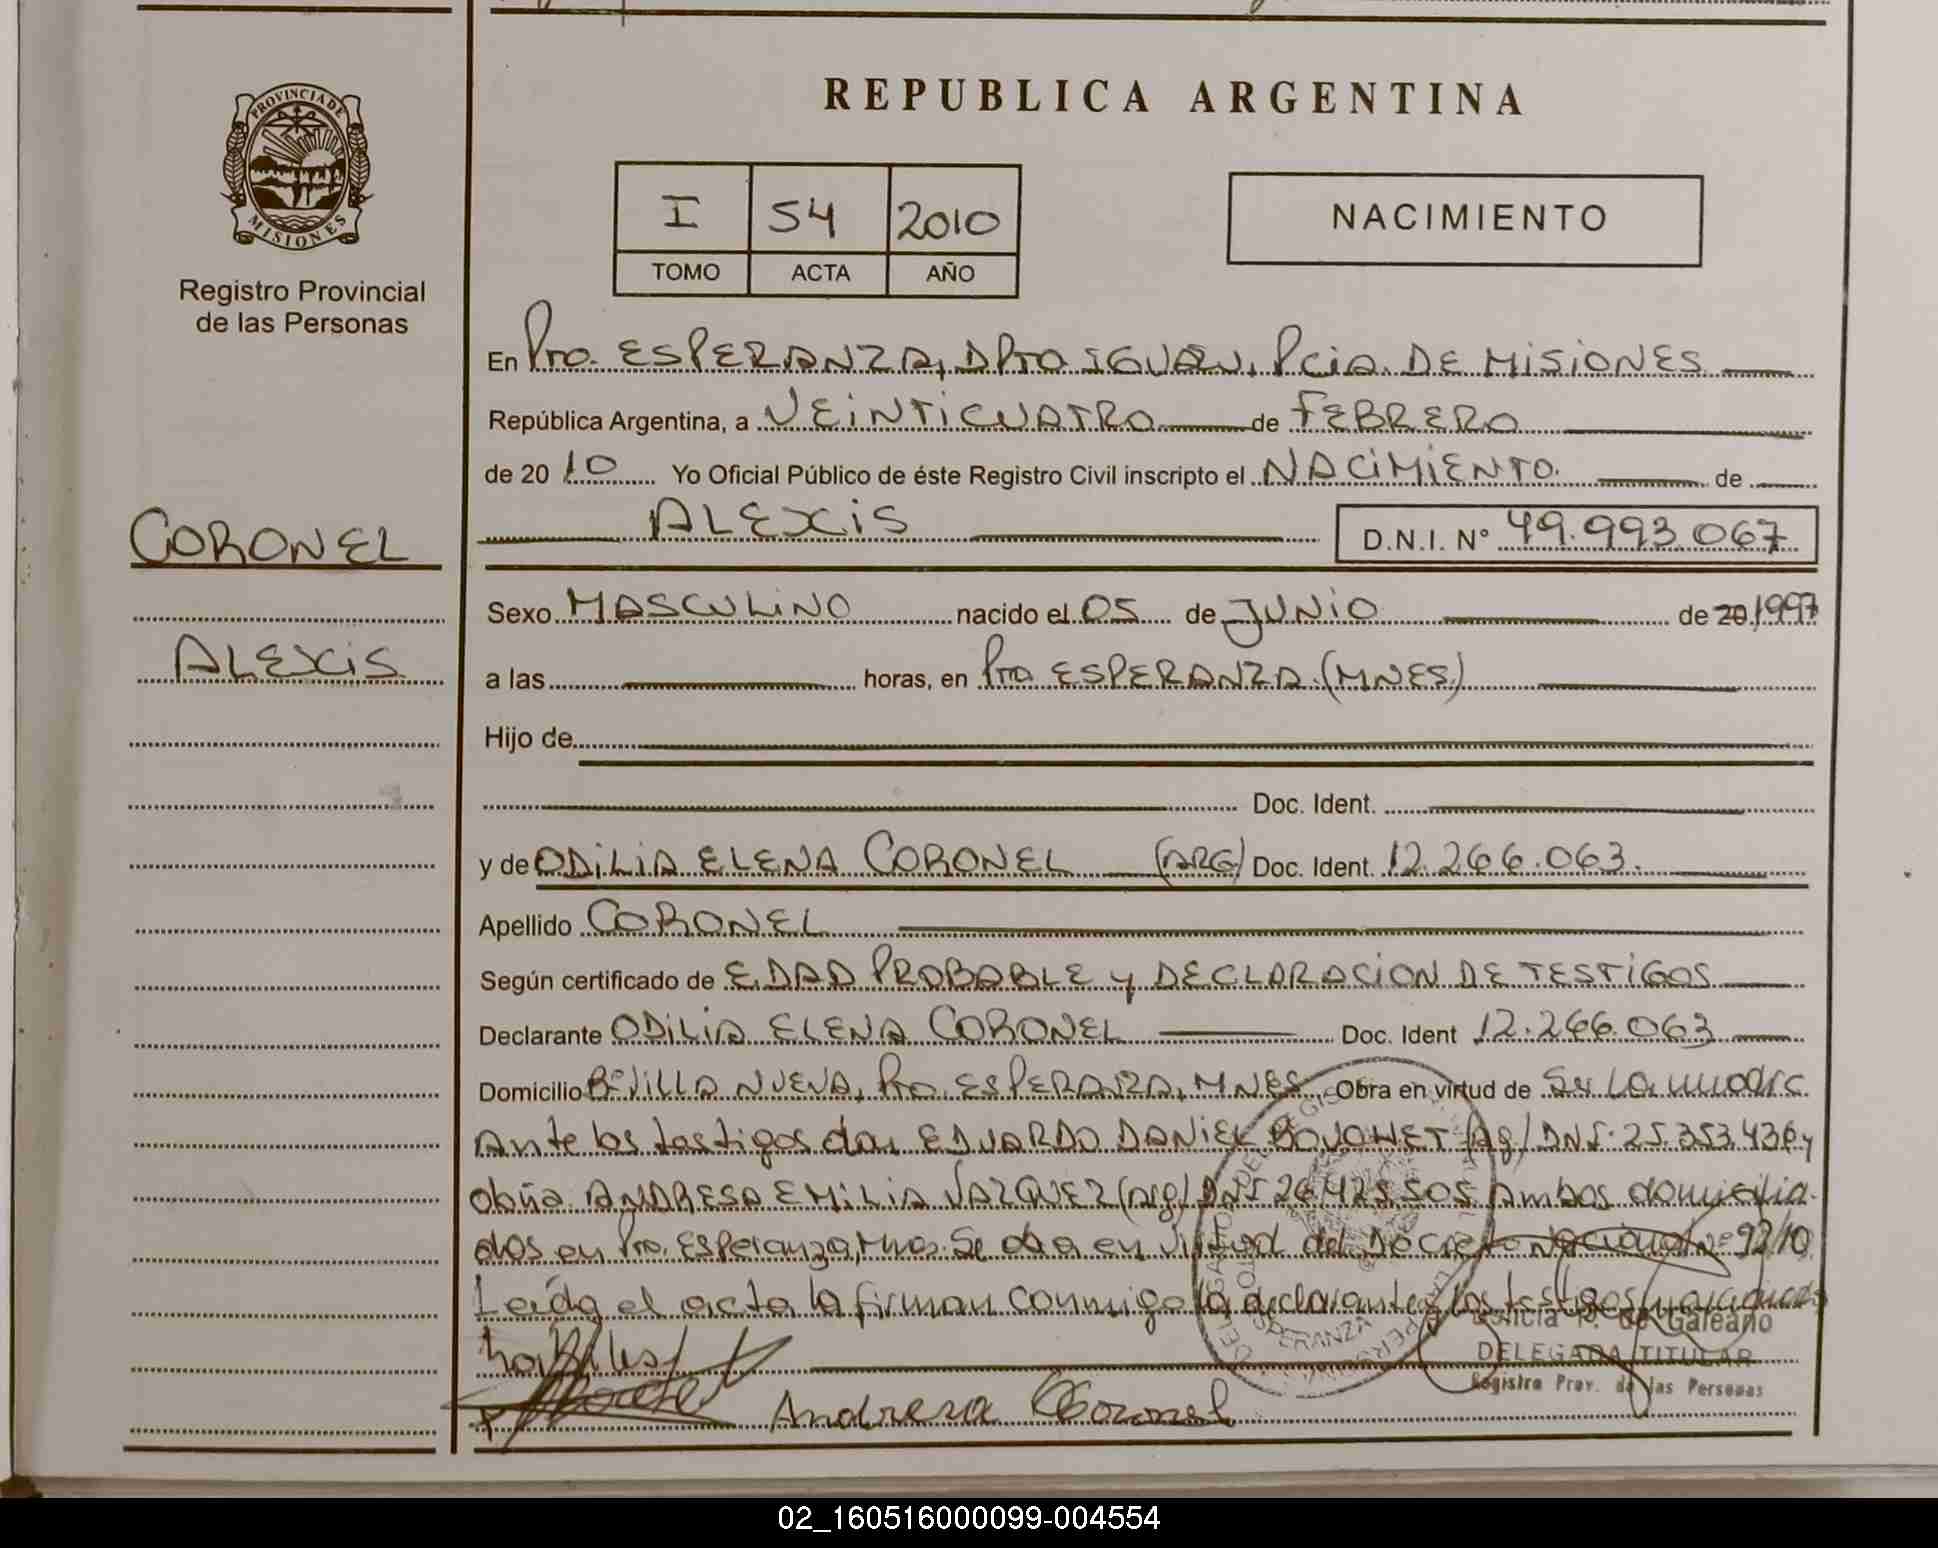 REPUBLICA ARGENTINA
PROVINCIA DE
MISIONES
Registro Provincial
de las Personas
I 54 2010
TOMO ACTA AÑO
NACIMIENTO
En Pto. ESPERANZA, DPTO IGUAZU, Pcia. DE MISIONES
República Argentina, a VEINTICUATRO de FEBRERO
de 2010 Yo Oficial Público de éste Registro Civil inscripto el NACIMIENTO. de
ALEXIS D.N.I. N° 49.993.067
CORONEL
ALEXIS
Sexo MASCULINO nacido el 05 de JUNIO de 20 1997
a las horas, en Pto ESPERANZA (MNES)
Hijo de
Doc. Ident.
y de ODILIA ELENA CORONEL (ARG) Doc. Ident. 12.266.063.
Apellido CORONEL
Según certificado de EDAD PROBABLE y DECLARACION DE TESTIGOS
Declarante ODILIA ELENA CORONEL Doc. Ident 12.266.063
Domicilio B° VILLA NUEVA, Pto. ESPERANZA, MNES Obra en virtud de
Ante los testigos don EDUARDO DANIEL (Arg) DNI: 25.353.436 y
doña ANDRESA EMILIA VAZQUEZ (arg) DNI 26.425.505 Ambos domicilia-
dos en Pto. Esperanza, Mnes. Se en virtud del Decreto Nacional N° 92/10
Leída el acta la firman conmigo la declarante y los testigos
de Galeano
DELEGADA TITULAR
Registro Prov. de las Personas
Andresa Coronel
02_160516000099-004554